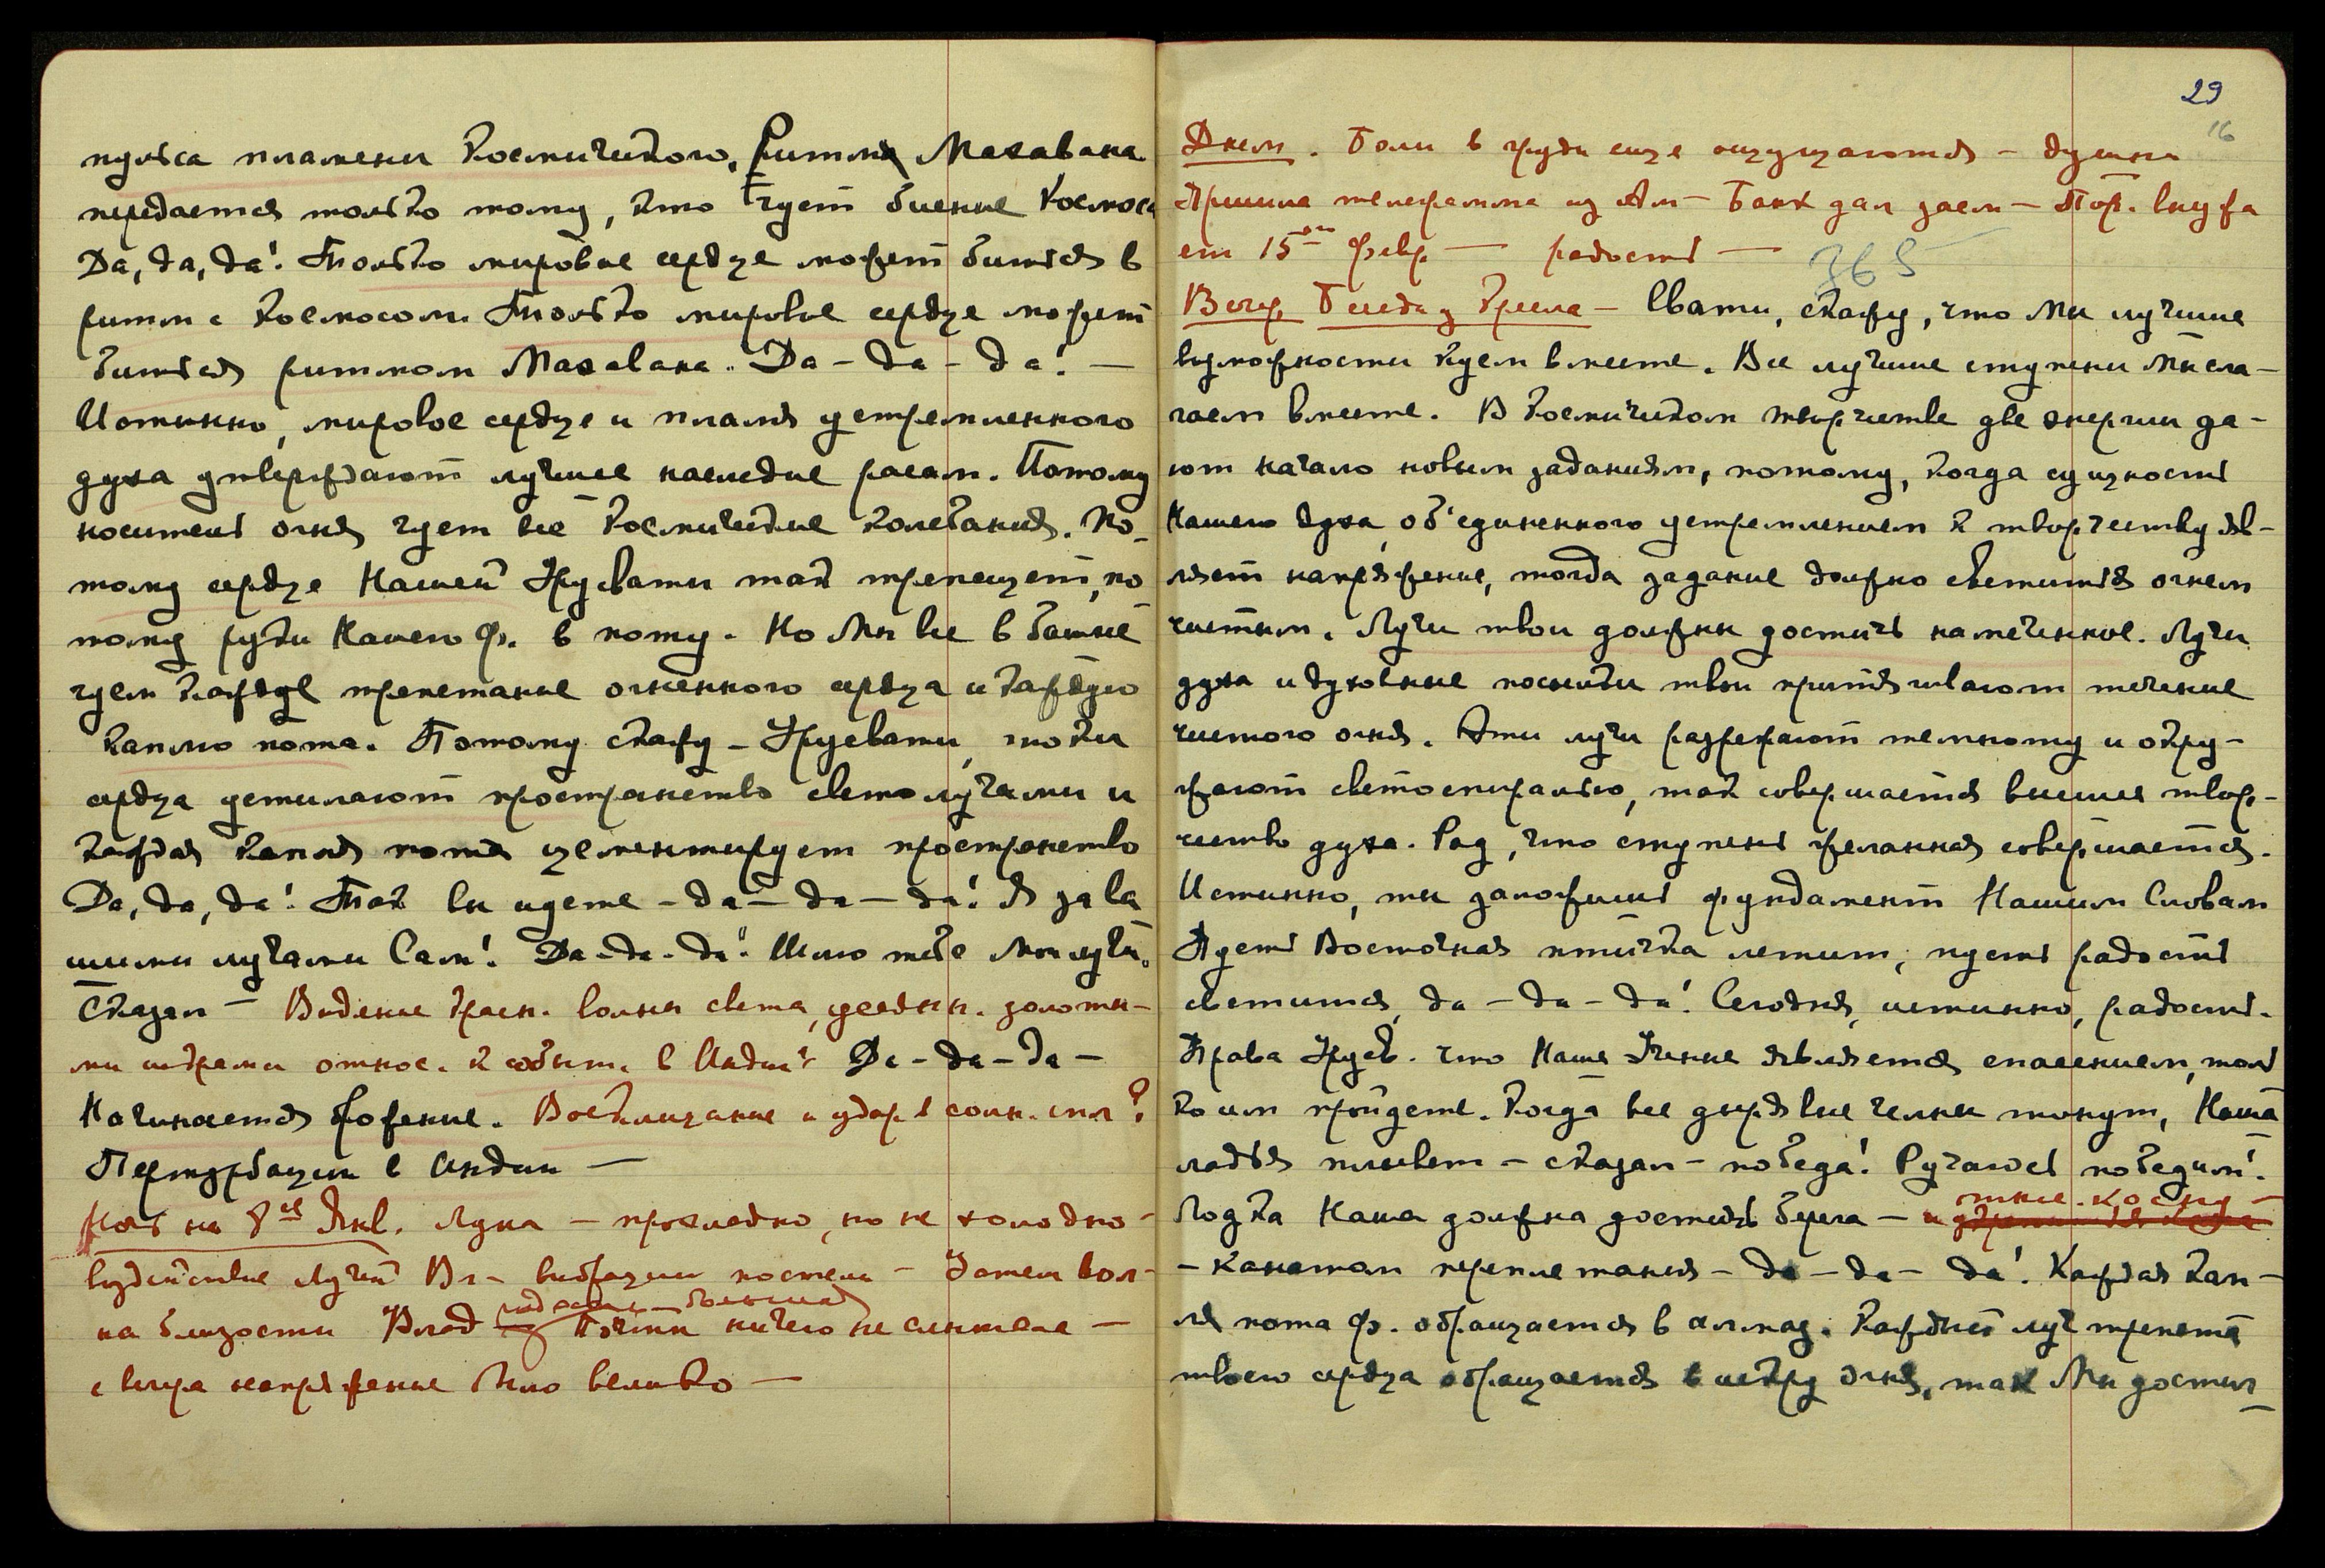 пульса пламени Космического. Ритм Махавана
передается только тому, кто чует биение Космоса
Да, да, да! Только мировое сердце может биться в
ритм с Космосом. Только мировое сердце может
биться ритмом Махавана. Да – да – да! –
Истинно, мировое сердце и пламя устремленного
духа утверждают лучшее наследие расам. Потому
носитель огня чует все Космические колебания. По-
тому сердце Нашей Урусвати так трепещет, по
тому руки Нашего Ф. в поту. Но Мы все в башне
чуем каждое трепетание огненного сердца и каждую
каплю пота. Потому скажу – Урусвати, токи
сердца устилают пространство светолучами и
каждая капля пота цементирует пространство
Да, да, да! Так вы идете – да – да – да! Я за ва
шими лучами Сам! Да – да – да! Шлю тебе Мои лучи.
Сказал – Видение красн. волны света, уседнн. золоты-
ми искрами относ. к событ. в Индии? Да – да – да –
Начинается брожение. Восклицание и удар в солн. спл?
Пертурбации в Индии –
Ночь на 8ое Янв. Луна – прохладно, но не холодно –
воздействие Лучей Вл – вибрации постели – Затем вол-
на близости Влад
Почти ничего не слышала –
с вечера напряжение было велико –
29
16
Днем. Боли в груди еще ощущаются – душна
Пришла телеграмма из Ам – Банк дал заем –
ет 15го февр – радость –
365
Вечер. Беседа из Кресла – Свати, скажу, что Мы лучшие
возможности куем вместе. Все лучшие ступени Мы сла-
гаем вместе. В Космическом творчестве две энергии да-
ют начало новым заданиям, потому, когда сущность
Нашего духа, об'единенного устремлением к творчеству яв-
ляет напряжение, тогда задание должно светиться огнем
чистым. Лучи твои должны достичь намеченное. Лучи
духа и духовные посылки твои притягивают течение
чистого огня. Эти лучи разрежают темноту и окру-
жают светоспиралью, так совершается высшее твор-
чество духа. Рад, что ступень желанная совершается.
Истинно, ты заложишь фундамент Нашим Словам
Пусть Восточная птичка летит, пусть радость
светится, да – да – да! Сегодня, истинно, радость.
Права Урусв. что Наше Учение является спасением, толь
ко им пройдете. Когда все дырявые челны тонут, Наша
ладья плывет – сказал – победа! Ручаюсь победим!
Лодка Наша должна достичь берега –
– канатом терпетания – да – да – да! Каждая кап-
ля пота Ф. обращается в алмаз. Каждый луч трепета
твоего сердца обращается в искру огня, так Мы достиг